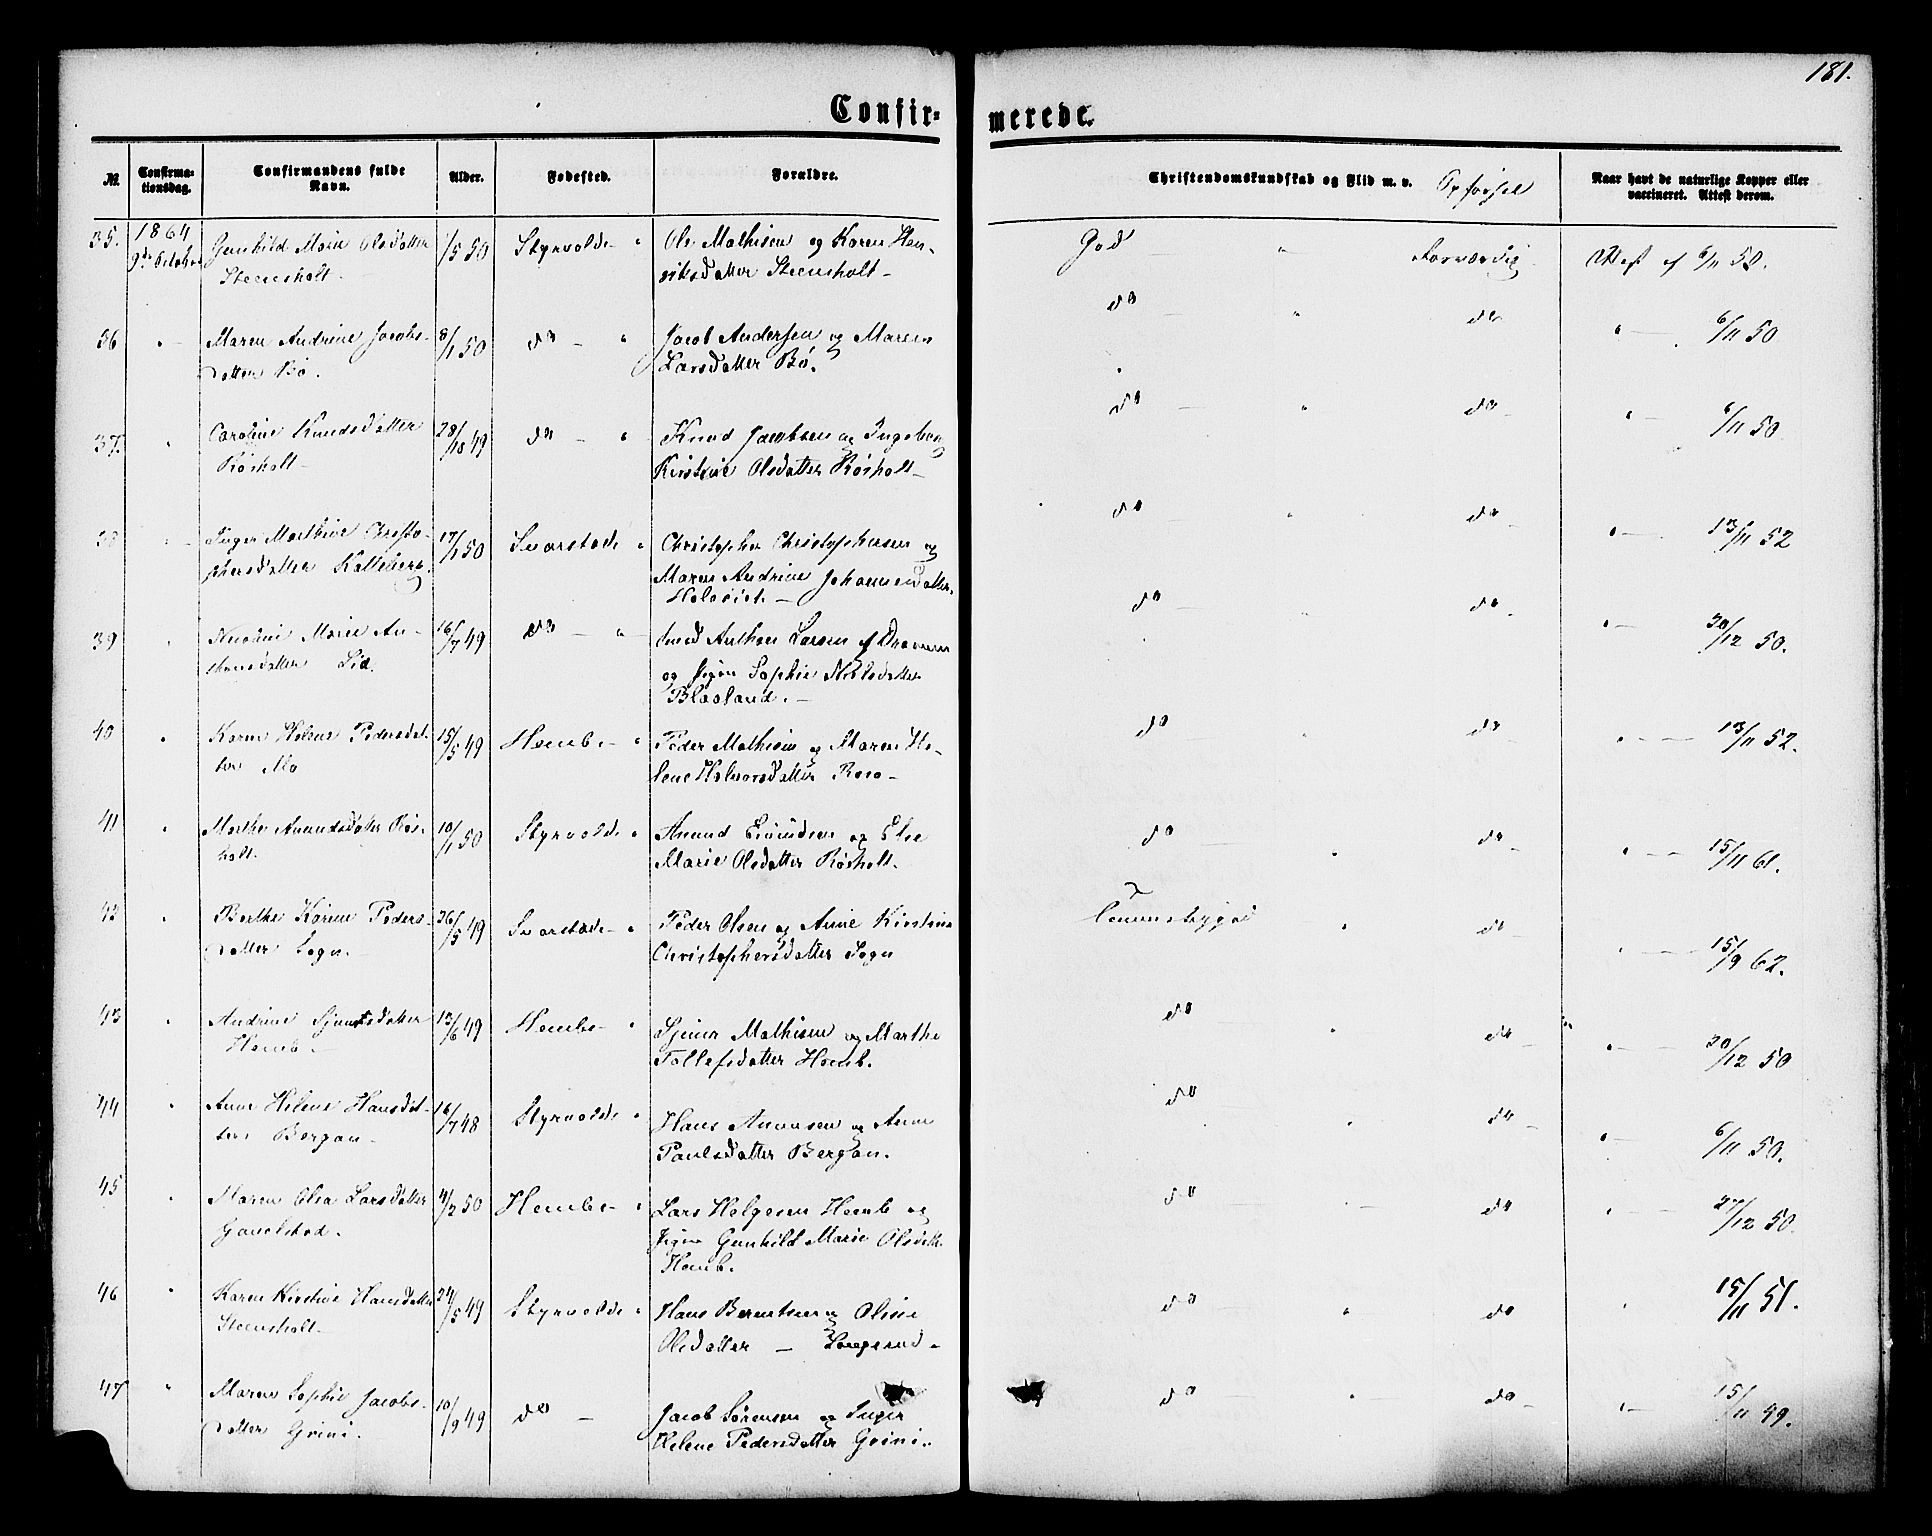 181.
Confir=
merede.
№ Confirma-tionsdag. Confirmandens fulde Navn. Alder. Fødested. Forældre. Christendomskundskab og Flid m. v. Opførsel Naar havt de naturlige Kopper eller vaccineret. Attest derom.
35. 1864 Gunhild Marie Olsdatter 1/5 50 Styrvolds " Ole Mathisen og Karen Hen- God " Attest af 6/11 50.
9de October Steensholt. riksdatter Steensholt-
36 " Maren Andrine Jacobs- 8/1 50 do - " Jacob Andersen og Maren do " do " 6/11 50
datter Bø. Larsdatter Bø.
37. " Caroline Knudsdatter 28/ 49 do - " Knud Jacobsen og Ingeborg do " do " 6/11 50
Røsholt- Kirstine Olsdatter Røsholt-
38 " Inger Mathive Christo- 17/1 50 Svarstads " Christopher Christophersen og do " do " 13/11 52
phersdatter Kalleberg Maren Andrine Johannesdatter
39 " Marie An- 16/7 49 do - " Anthon Larsen af Drammen do do " 30/12 50.
thonsdatter Lid. og Pigen Sophie Nilsdatter
Blaaland. -
40 " Karen Helene Pedersdat- 15/5 49 Hembs - " Peder Mathisen og Maren He- do " do " 13/11 52.
ter Mo lene Halvorsdatter
41 " Marthe Amundsdatter Røs- 10/1 50 Styrvolds " Amund og Else do " do " 15/11 61.
holt. Marie Olsdatter Røsholt.
42 " Berthe Karine Peders- 26/5 49 Svarstads - " Peder Olsen og Anne Kirstine " do " 15/9 62.
datter Sogn. Christophersdatter Sogn
43 " Andrine datter 13/6 49 Hembs - " Mathisen og Marthe do " do " 30/12 50
Hemb. - Tollefsdatter Hemb.
44 " Anne Helene Hansdat- 16/7 48 Styrvolds " Hans Anunsen og Anne do " do " 6/11 50.
ter Bergan- Paulsdatter Bergan.
45 " Maren Olea Larsdatter 4/2 50 Hembs - " Lars Helgesen Hemb og do do " 27/12 50.
Gavelstad. Pigen Gunhild Marie Olsdatt.
Hemb.
46 " Karen Kirstine Hansdatter 24/5 49 Styrvolds " Hans Berntsen og Olsine do " do " 15/11 51.
Steensholt- Olsdatter - Langerud.
47 " Maren Sophie Jacobs- 10/9 49 do - Jacob Sørensen og Inger do " do " 15/11 49.
datter Grini. Helene Pedersdatter Grini.